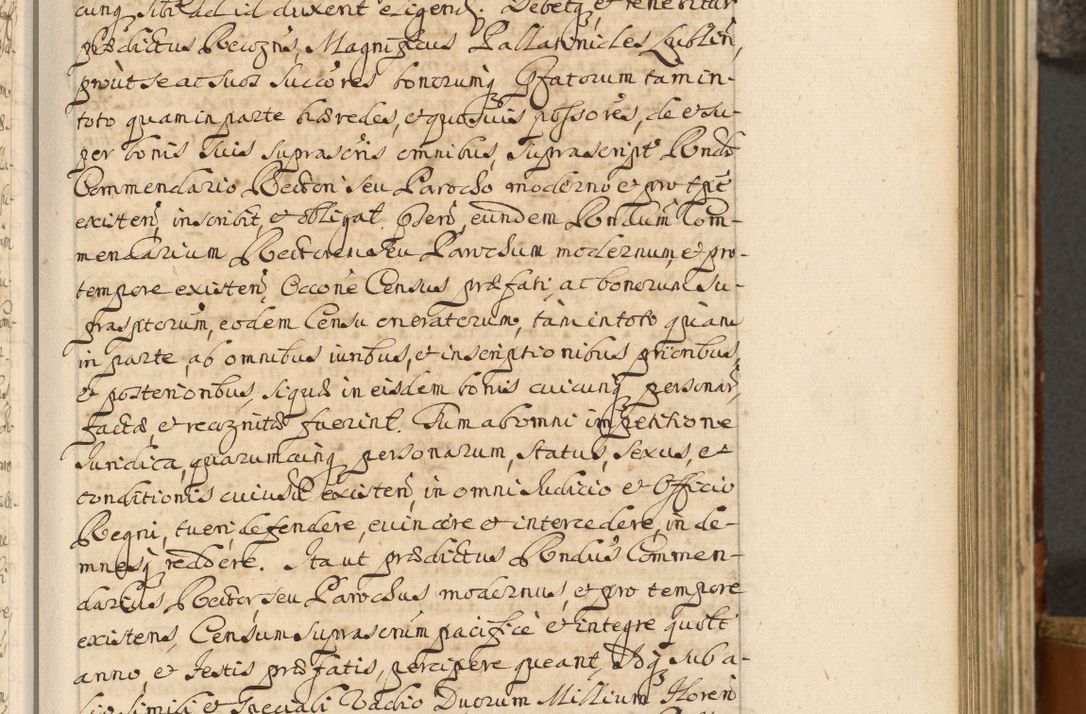 cunq sibi ad id duxent eligend. Debetq et tenebitur
prædictus Recogns, Magnificus Pallatinides Lublin,
prout se ac suos succores bonorumq Pfatorum tam in-
toto quam in parte hæredes, et quosuis possores, de et su-
per bonis suis suprascris omnibus, suprascript Rndo
Commendario Rectori seu Parocho moderno et pro tpre
existen, inscribit, et obligat. Psens, eundem Rndum Com-
mendarium Rectorem seu Parochum modernum, et pro-
tempore existen, Occone Census præfati, ac bonorum su-
prasptorum, eodem Censu oneratorum, tam in toto quam
in parte, ab omnibus iuribus, et inscriptionibus prioribus,
et posterioribus, siquæ in eisdem bonis cuicunq personar,
factæ, et recognitæ fuerint. Tum ab omni impetitione
Iuridica, quarumcunq personarum, status, sexus, et
conditionis cuiusd existen, in omni Iudicio et Officio
Regni, tueri, defendere, euincere et intercedere, inde-
mnesq reddere. Ita ut prædictus Rndus Commen-
darius, Rector, seu Parochus modernus, et pro tempore
existens, Censum suprascrum pacifice et integre quolt
anno, et Festis præfatis, percipere queant, Idq sub a-
lio simili et speciali Vadio Duorum Millium Floren